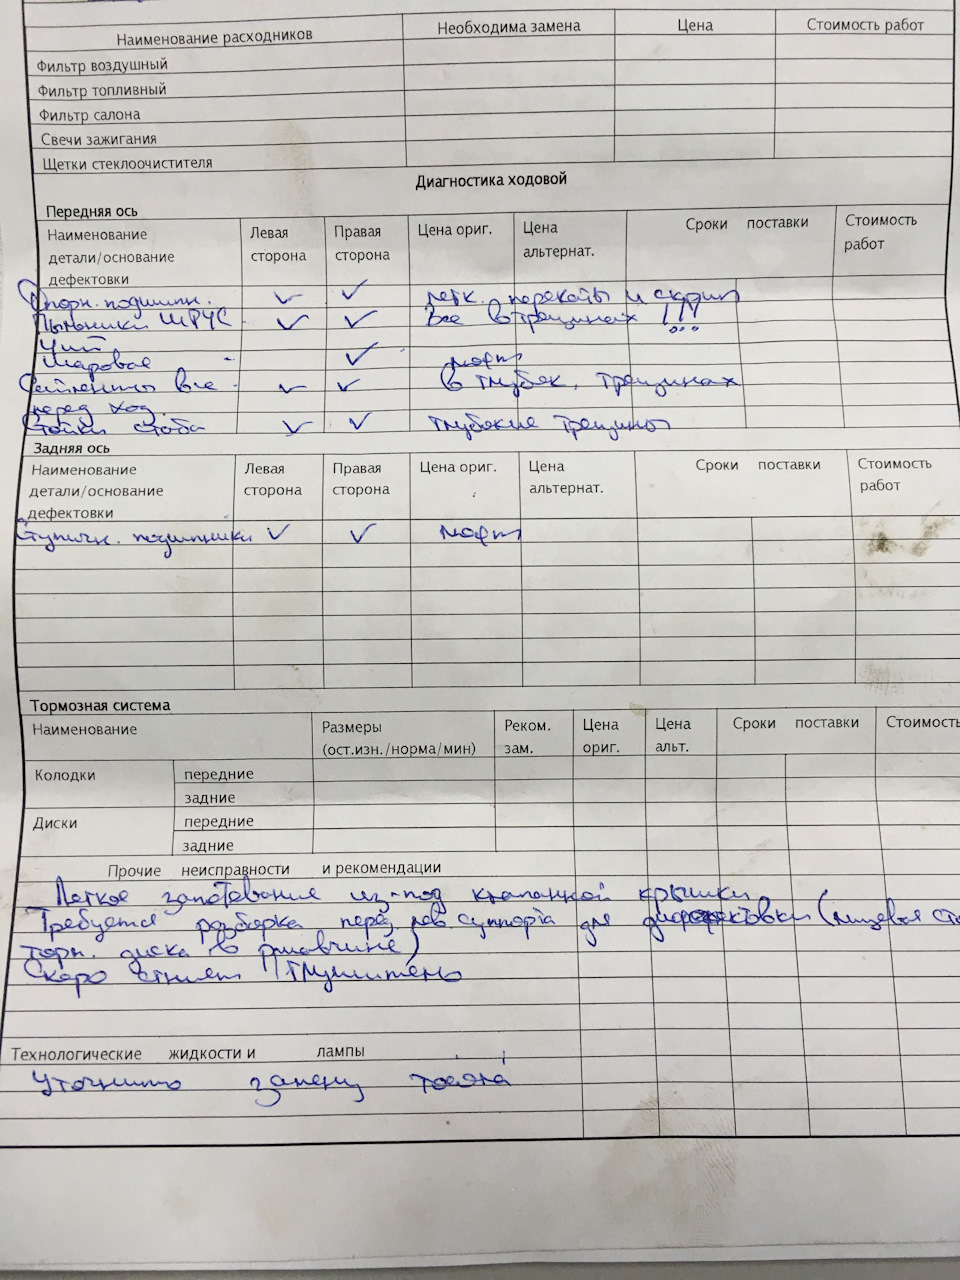 Наименование расходников Необходима замена Цена Стоимость работ
Фильтр воздушный
Фильтр топливный
Фильтр салона
Свечи зажигания
Щетки стеклоочистителя
Диагностика ходовой
Передняя ось
Наименование детали/основание дефектовки Левая сторона Правая сторона Цена ориг. Цена альтернат. Сроки поставки Стоимость работ
Опорн. подшипн. ✓ ✓ легк. перекаты и скрип
Пыльники ШРУС ✓ ✓ Все в трещинах !!!
Шаровое - ✓ люфт
Сайленты все - ✓ ✓ в глубок. трещинах
перед ход.
Стойки стаба ✓ ✓ глубокие трещины
Задняя ось
Наименование детали/основание дефектовки Левая сторона Правая сторона Цена ориг. Цена альтернат. Сроки поставки Стоимость работ
Ступичн. подшипники ✓ ✓ люфт
Тормозная система
Наименование Размеры (ост.изн./норма/мин) Реком. зам. Цена ориг. Цена альт. Сроки поставки Стоимость
Колодки передние
задние
Диски передние
задние
Прочие неисправности и рекомендации
Легкое запотевание из-под клапанной крышки
Требуется разборка перед. лев суппорта для дефектовки (лицевая сто
торм. диска в ржавчине)
Скоро сгниет глушитель
Технологические жидкости и лампы
Уточнить замену тосола